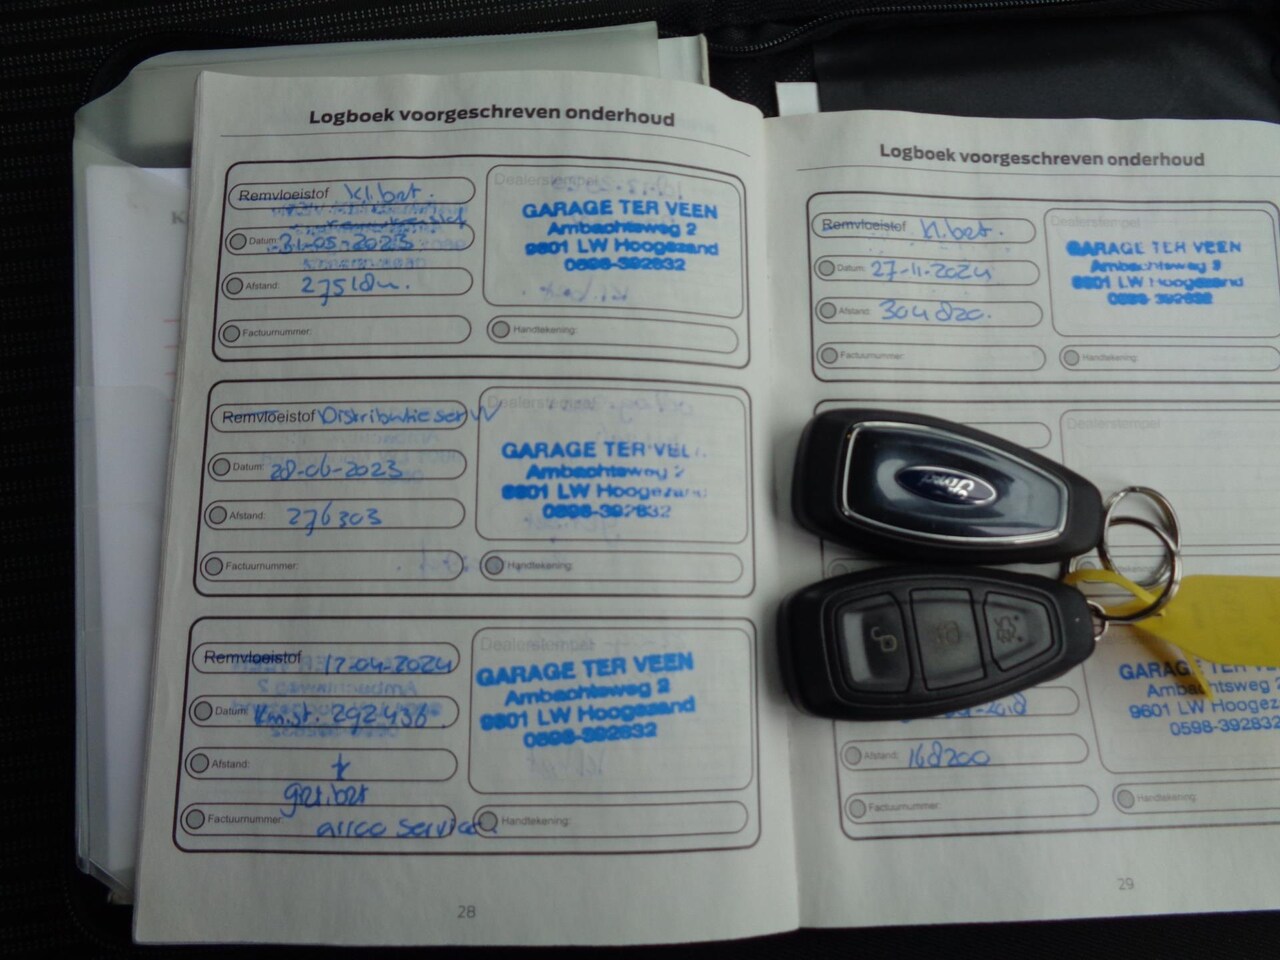 Logboek voorgeschreven onderhoud
Remvloeistof kl.bet.
Datum: 31-05-2023
Afstand:
Factuurnummer:
Dealerstempel
GARAGE TER VEEN
Ambachtsweg 2
9601 LW Hoogezand
0598-392632
Handtekening:
Remvloeistof Distributieser
Datum: 28-06-2023
Afstand: 276303
Factuurnummer:
Dealerstempel
GARAGE TER VEE
Ambachtsweg 2
9601 LW Hoogezand
0598-392632
Handtekening:
Remvloeistof 17-04-2024
Datum: Km.st. 292436
Afstand: +
grt.bet
Factuurnummer: airco service
Dealerstempel
GARAGE TER VEEN
Ambachtsweg 2
9601 LW Hoogezand
0598-392632
Handtekening:
28
Logboek voorgeschreven onderhoud
Remvloeistof kl.bet.
Datum: 27-11-2024
Afstand: 304820.
Factuurnummer:
Dealerstempel
GARAGE TER VEEN
Ambachtsweg 2
9601 LW Hoogezand
0598-392632
Handtekening:
Dealerstempel
Ford
GARAG
Ambachtsweg 2
9601 LW Hoogez
0598-392632
2018
Afstand: 168200
Factuurnummer:
Handtekening:
29